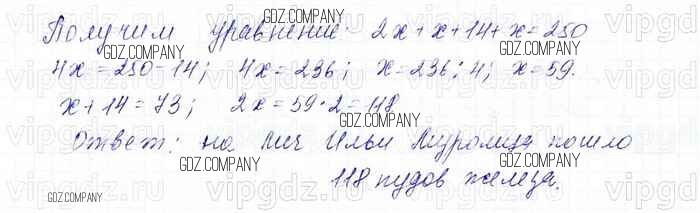 GDZ.COMPANY
Получим уравнение: 2x+x+14+x=250
GDZ.COMPANY GDZ.COMPANY
4x=250-14; 4x=236; x=236:4; x=59.
x+14=73; 2x=59·2=118
GDZ.COMPANY
Ответ: на меч Ильи Муромца пошло
GDZ.COMPANY GDZ.COMPANY
118 пудов железа.
GDZ.COMPANY
vipgdz.ru